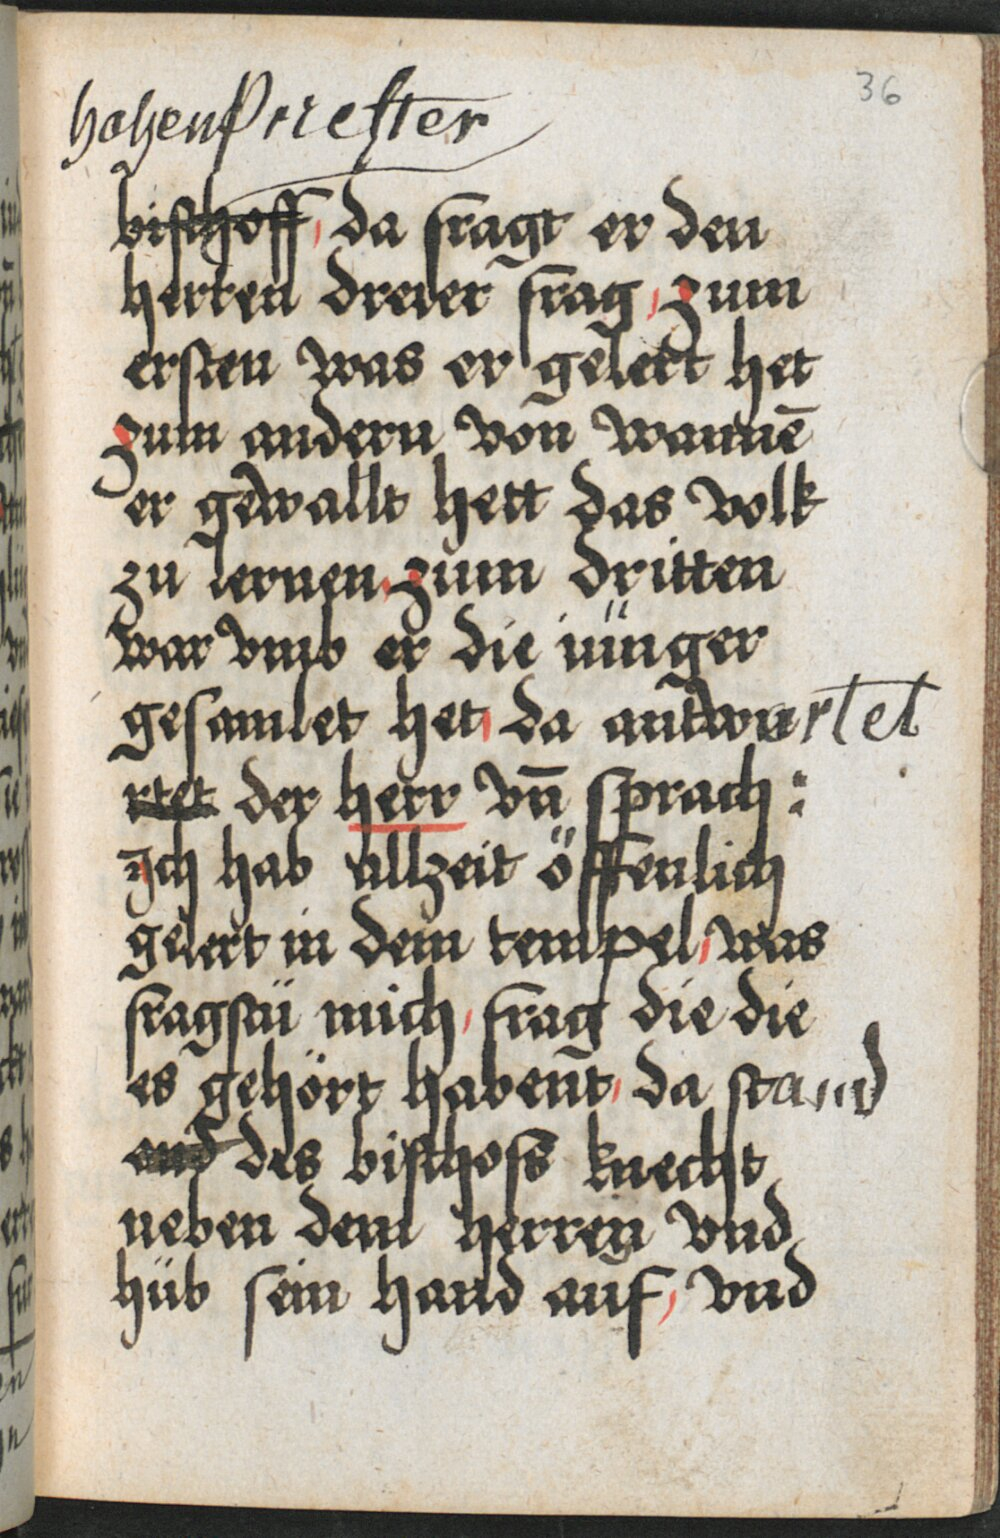 36
hohenPriester
bischoff, da fragt er den
herren dreier frag, zum
ersten was er gelert het
zum andern von wannē
er gewallt hett das volk
zu lernen, zum dritten
war vmb er die iünger
gesamlet het, da antwurtet
rtet der herr vn̄ sprach :
Ich hab allzeit öffenlich
gelert in dem tempel, was
fragstü mich, frag die die
es gehört habent, da stand
end des bischofs knecht
neben dem herren vnd
hüb sein hand auf, vnd